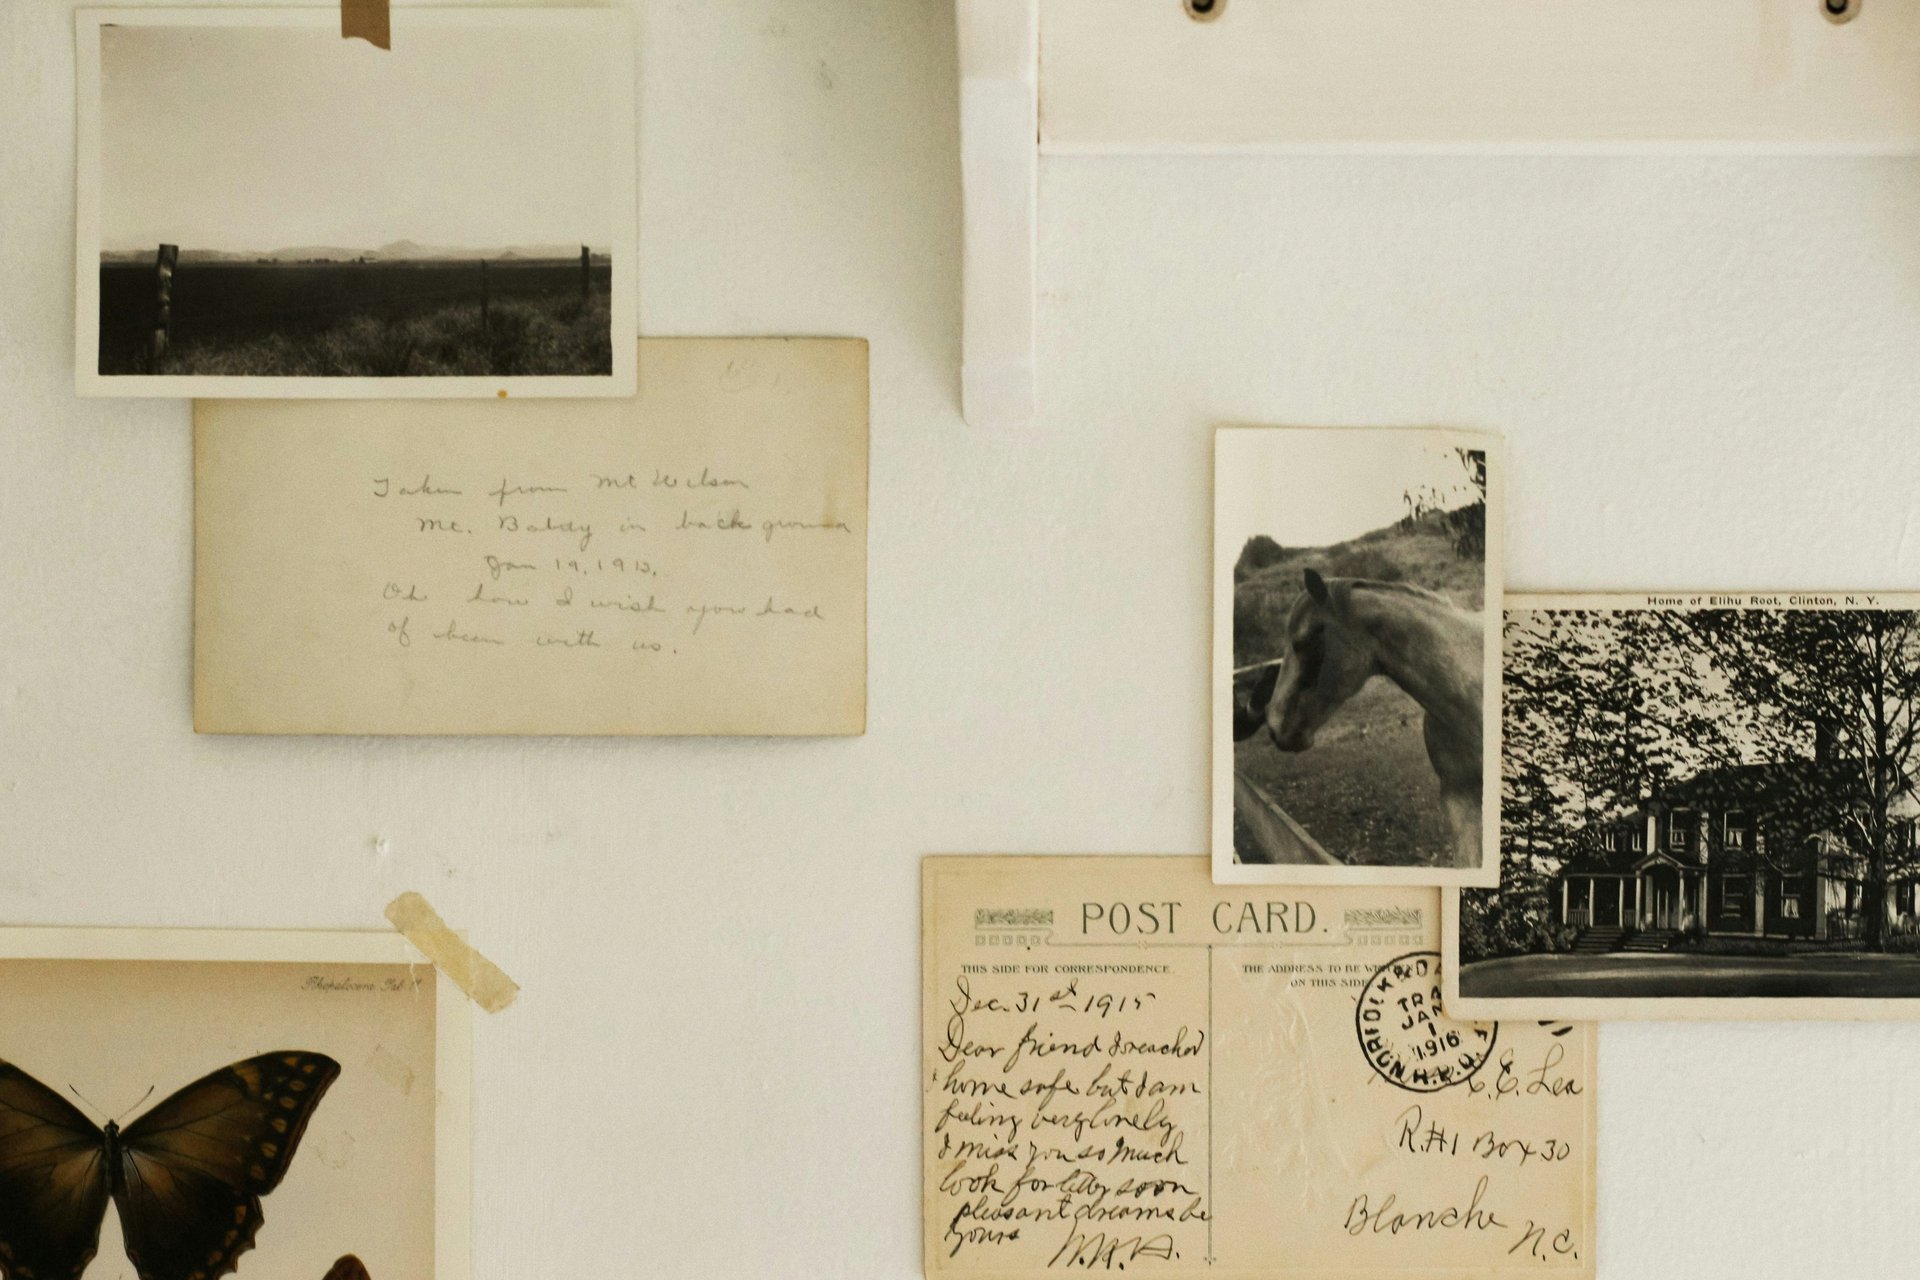 Taken from Mt Wilson
Mt. Baldy in back ground
Jan 19, 1913.
Oh how I wish you had
of been with us.
Home of Elihu Root, Clinton, N. Y.
POST CARD.
THIS SIDE FOR CORRESPONDENCE
THE ADDRESS TO BE
ON THIS SIDE
Dec. 31st 1915
Dear friend I reached
home safe but I am
feeling very lonely
I miss you so much
look for letter soon
pleasant dreams be
yours
JAN
1
1916
R.P.O.
C.E. Lea
R.#1 Box 30
Blanche
N.C.
Rhopalocera